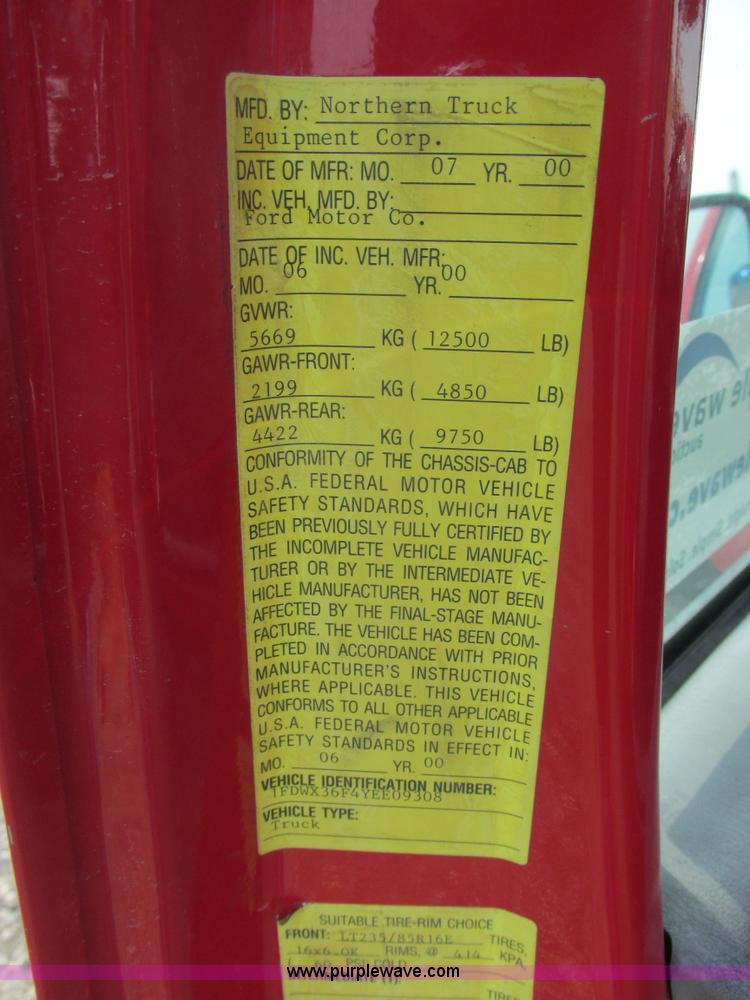 MFD. BY: Northern Truck
Equipment Corp.
DATE OF MFR: MO. 07 YR. 00
INC. VEH. MFD. BY:
Ford Motor Co.
DATE OF INC. VEH. MFR:
MO. 06 YR. 00
GVWR:
5669 KG ( 12500 LB)
GAWR-FRONT:
2199 KG ( 4850 LB)
GAWR-REAR:
4422 KG ( 9750 LB)
CONFORMITY OF THE CHASSIS-CAB TO
U.S.A. FEDERAL MOTOR VEHICLE
SAFETY STANDARDS, WHICH HAVE
BEEN PREVIOUSLY FULLY CERTIFIED BY
THE INCOMPLETE VEHICLE MANUFAC-
TURER OR BY THE INTERMEDIATE VE-
HICLE MANUFACTURER, HAS NOT BEEN
AFFECTED BY THE FINAL-STAGE MANU-
FACTURE. THE VEHICLE HAS BEEN COM-
PLETED IN ACCORDANCE WITH PRIOR
MANUFACTURER'S INSTRUCTIONS,
WHERE APPLICABLE. THIS VEHICLE
CONFORMS TO ALL OTHER APPLICABLE
U.S.A. FEDERAL MOTOR VEHICLE
SAFETY STANDARDS IN EFFECT IN:
MO. 06 YR. 00
VEHICLE IDENTIFICATION NUMBER:
1FDWX36F4YEE09308
VEHICLE TYPE:
Truck
SUITABLE TIRE-RIM CHOICE
FRONT: LT235/85R16E TIRES,
16x6.0K RIMS, @ 414 KPA
www.purplewave.com